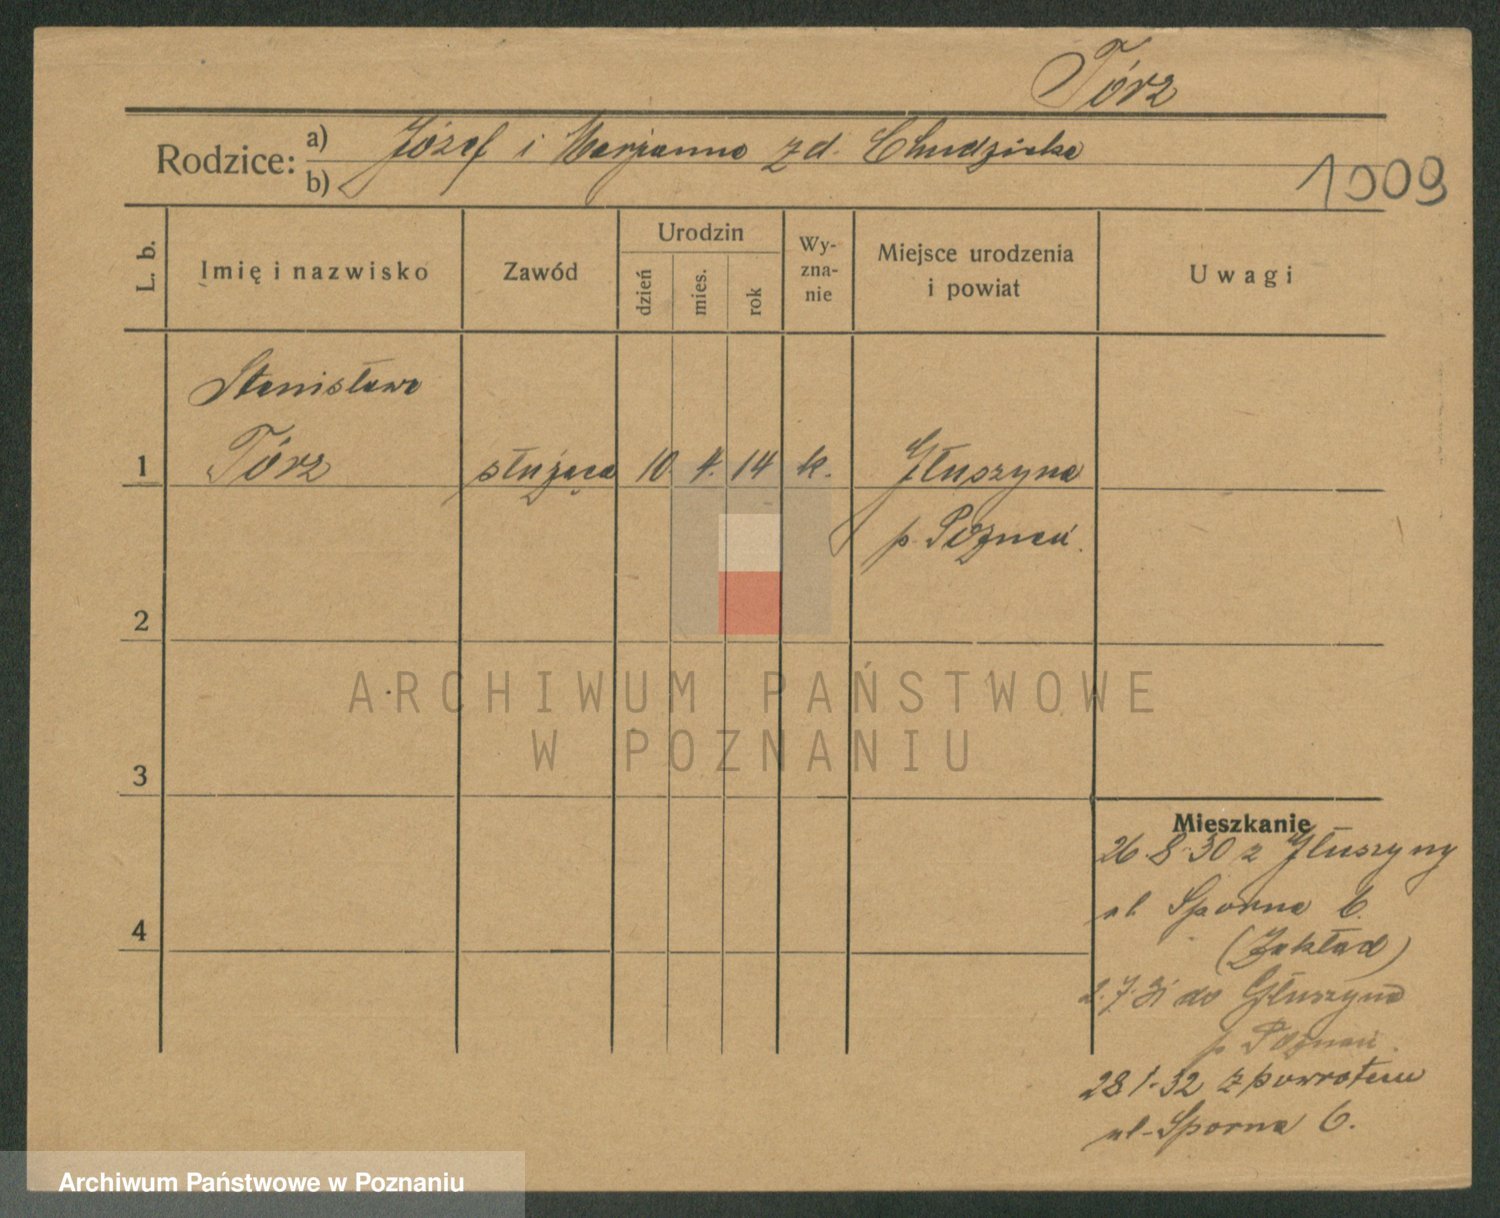 Tórz
Rodzice: a) Józef i Marjanna z d. Chudzicka
b)
1909
L. b.
Imię i nazwisko
Zawód
Urodzin
dzień
mies.
rok
Wy-
zna-
nie
Miejsce urodzenia
i powiat
Uwagi
Stanisława
1 Tórz służąca 10 4. 14 k. Głuszyna
p. Poznań.
2
ARCHIWUM PAŃSTWOWE
W POZNANIU
3
Mieszkanie
26.8.30 z Głuszyny
ul. Sporna 6.
4
(Zakład)
2.7.31 do Głuszyna
p. Poznań.
28.1.32 z powrotem
ul. Sporna 6.
Archiwum Państwowe w Poznaniu